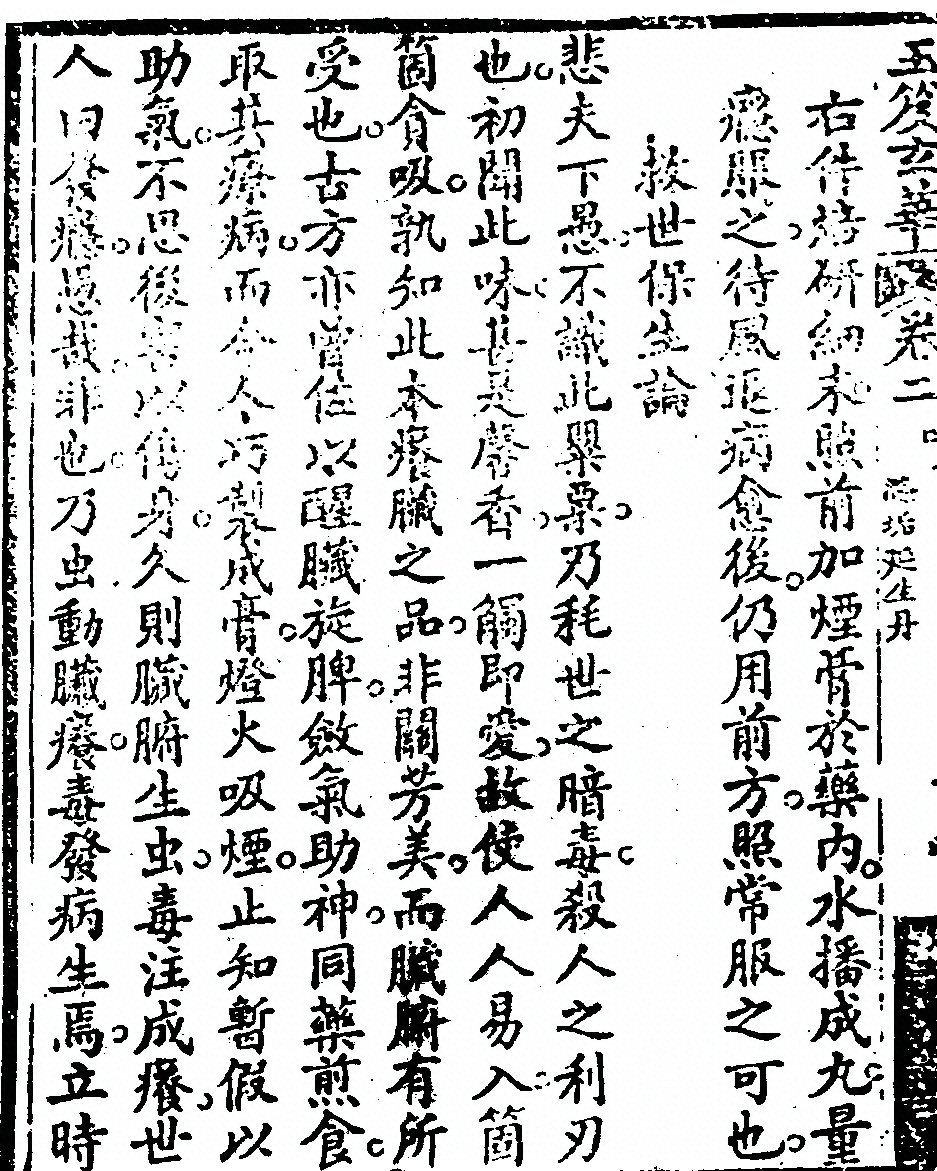 玉笈玄華 卷二 延生丹
右件焙研細末照前加煙膏於藥內水播成丸量
癮服之待風退病愈後仍用前方照常服之可也
救世保生論
悲夫下愚不識此罌粟乃耗世之暗毒殺人之利刃
也初聞此味甚是馨香一觸即愛故使人人易入箇
箇貪吸孰知此本癢臟之品非關芳美而臟腑有所
受也古方亦曾佐以醒臟旋脾斂氣助神同藥煎食
取其療病而今人巧製成膏燈火吸煙止知暫假以
助氣不思後害以傷身久則臟腑生虫毒注成癢世
人曰發癮愚哉非也乃虫動臟癢毒發病生焉立時